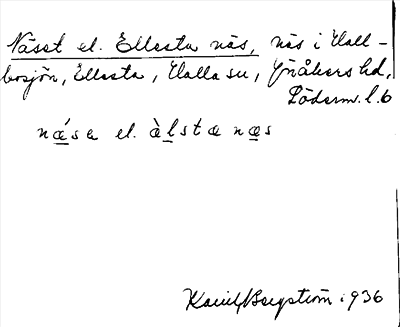 Näset el. Ellesta näs, näs i Hall-
bosjön, Ellesta, Halla sn, Rönö hd,
Söderm. l. 6
næ´sa el. àlsta næs
Karin Bergström 1936